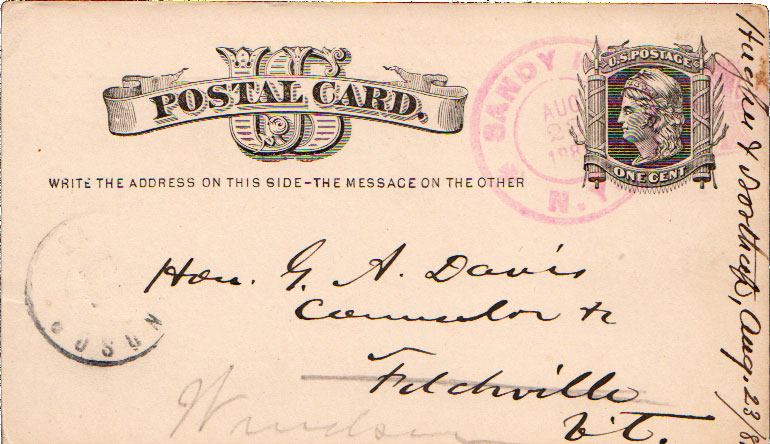 US
POSTAL CARD.
WRITE THE ADDRESS ON THIS SIDE-THE MESSAGE ON THE OTHER
U.S. POSTAGE
ONE CENT
SANDY
AUG
N.Y.
Hon. G. A. Davis
Counselor &c
Felchville
Vt.
Windsor
Aug. 23/8